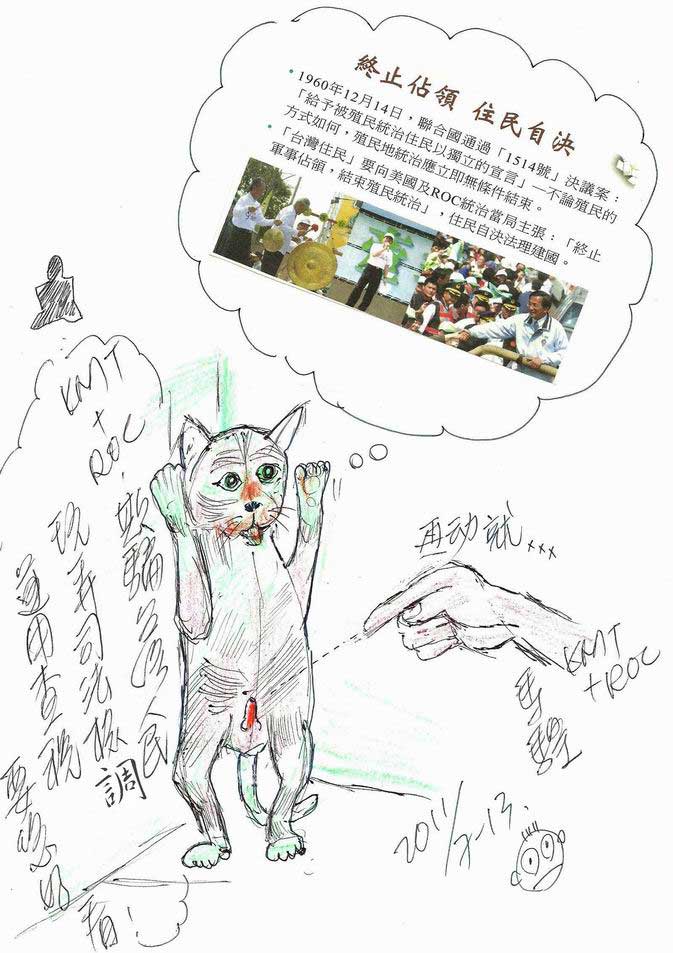 終止佔領 住民自決
•1960年12月14日，聯合國通過「1514號」決議案：
「給予被殖民統治住民以獨立的宣言」—不論殖民的
方式如何，殖民地統治應立即無條件結束。
•「台灣住民」要向美國及ROC統治當局主張：「終止
軍事佔領，結束殖民統治」，住民自決法理建國。
KMT
+
ROC
欺騙台湾民
玩弄司法檢調
運用查稅
要你好看！
再动就×××
KMT
+ROC
2011/7-13.